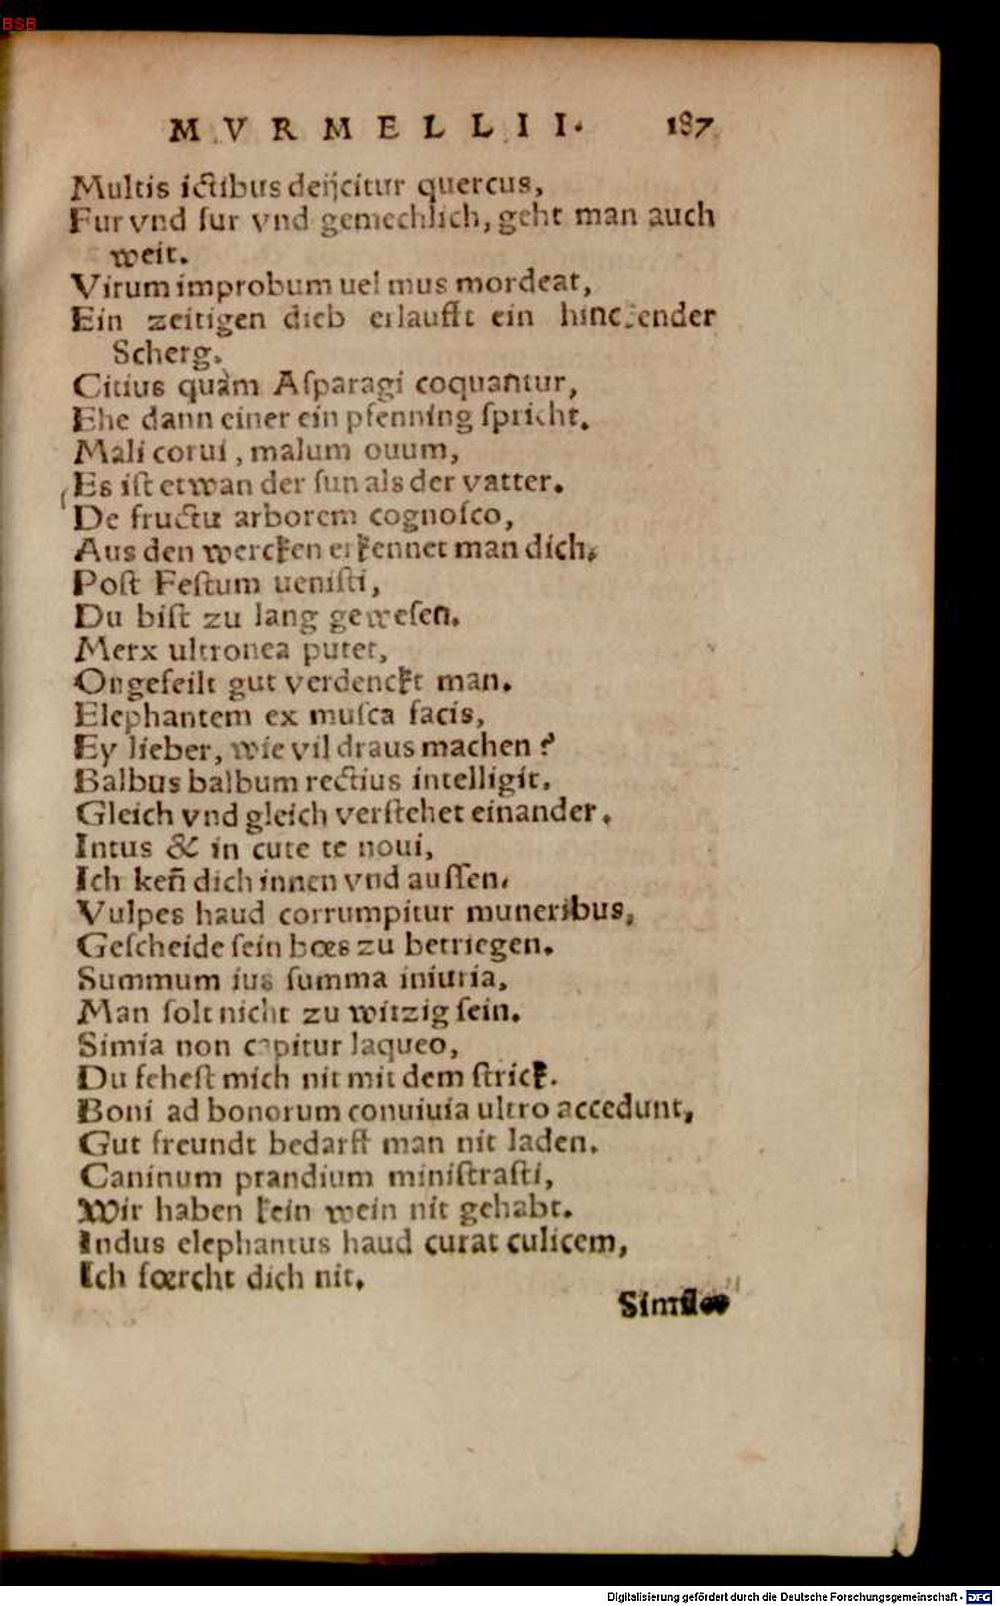 BSB
MVRMELLII. 187
Multis ictibus deijcitur quercus,
Fur vnd fur vnd gemechlich, geht man auch
weit.
Virum improbum uel mus mordeat,
Ein zeitigen dieb erlaufft ein hinckender
Scherg.
Citius quàm Aſparagi coquantur,
Ehe dann einer ein pfenning ſpricht.
Mali corui, malum ouum,
Es iſt etwan der ſun als der vatter.
De fructu arborem cognoſco,
Aus den wercken erkennet man dich.
Poſt Feſtum ueniſti,
Du biſt zu lang geweſen.
Merx ultronea putet,
Ongefeilt gut verdenckt man.
Elephantem ex muſca facis,
Ey lieber, wie vil draus machen?
Balbus balbum rectius intelligit.
Gleich vnd gleich verſtehet einander.
Intus & in cute te noui,
Ich keñ dich innen vnd auſſen.
Vulpes haud corrumpitur muneribus,
Geſcheide ſein bœs zu betriegen.
Summum ius ſumma iniuria,
Man ſolt nicht zu witzig ſein.
Simia non capitur laqueo,
Du feheſt mich nit mit dem ſtrick.
Boni ad bonorum conuiuia ultro accedunt,
Gut freundt bedarff man nit laden.
Caninum prandium miniſtraſti,
Wir haben kein wein nit gehabt.
Indus elephantus haud curat culicem,
Ich fœrcht dich nit.
Digitalisierung gefördert durch die Deutsche Forschungsgemeinschaft - DFG